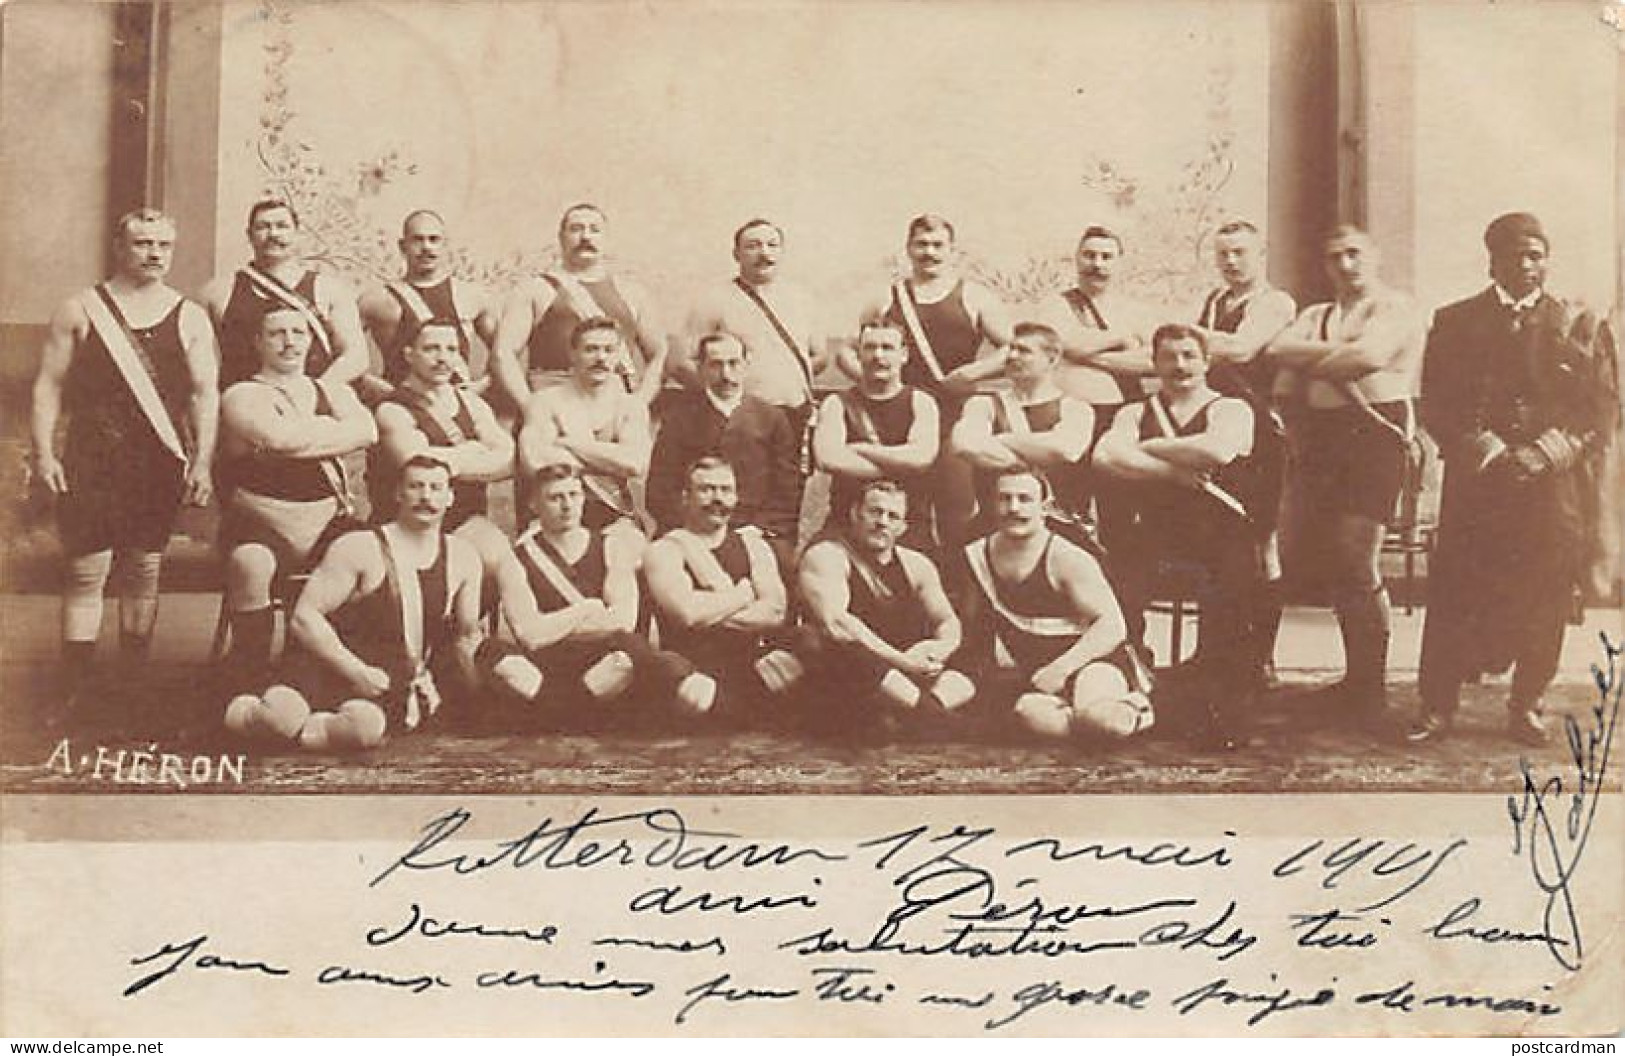 A. HÉRON
Rotterdam 17 mai 1905
ami Péron
Donne mes salutation Chez toi bien
aux amis pour toi un grosse poigné de main
delcampe.net
postcardman